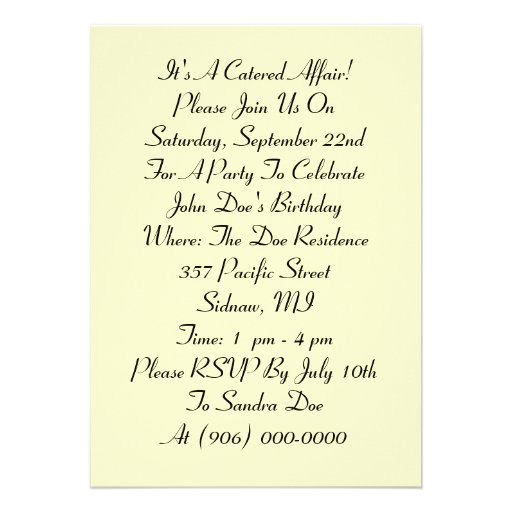 It's A Catered Affair!
Please Join Us On
Saturday, September 22nd
For A Party To Celebrate
John Doe's Birthday
Where: The Doe Residence
357 Pacific Street
Sidnaw, MI
Time: 1 pm - 4 pm
Please RSVP By July 10th
To Sandra Doe
At (906) 000-0000